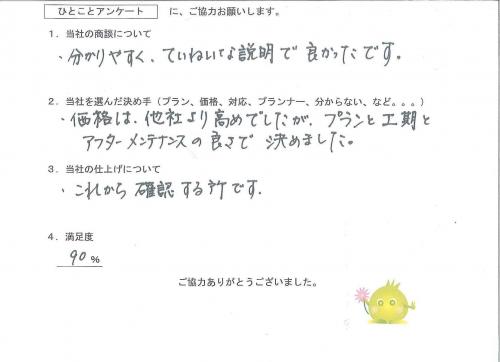 ひとことアンケート に、ご協力お願いします。
1．当社の商談について
・分かりやすく、ていねいな説明で良かったです。
2．当社を選んだ決め手（プラン、価格、対応、プランナー、分からない、など。。。）
・価格は、他社より高めでしたが、プランと工期と
アフターメンテナンスの良さで決めました。
3．当社の仕上げについて
・これから確認する所です．
4．満足度
90 %
ご協力ありがとうございました。